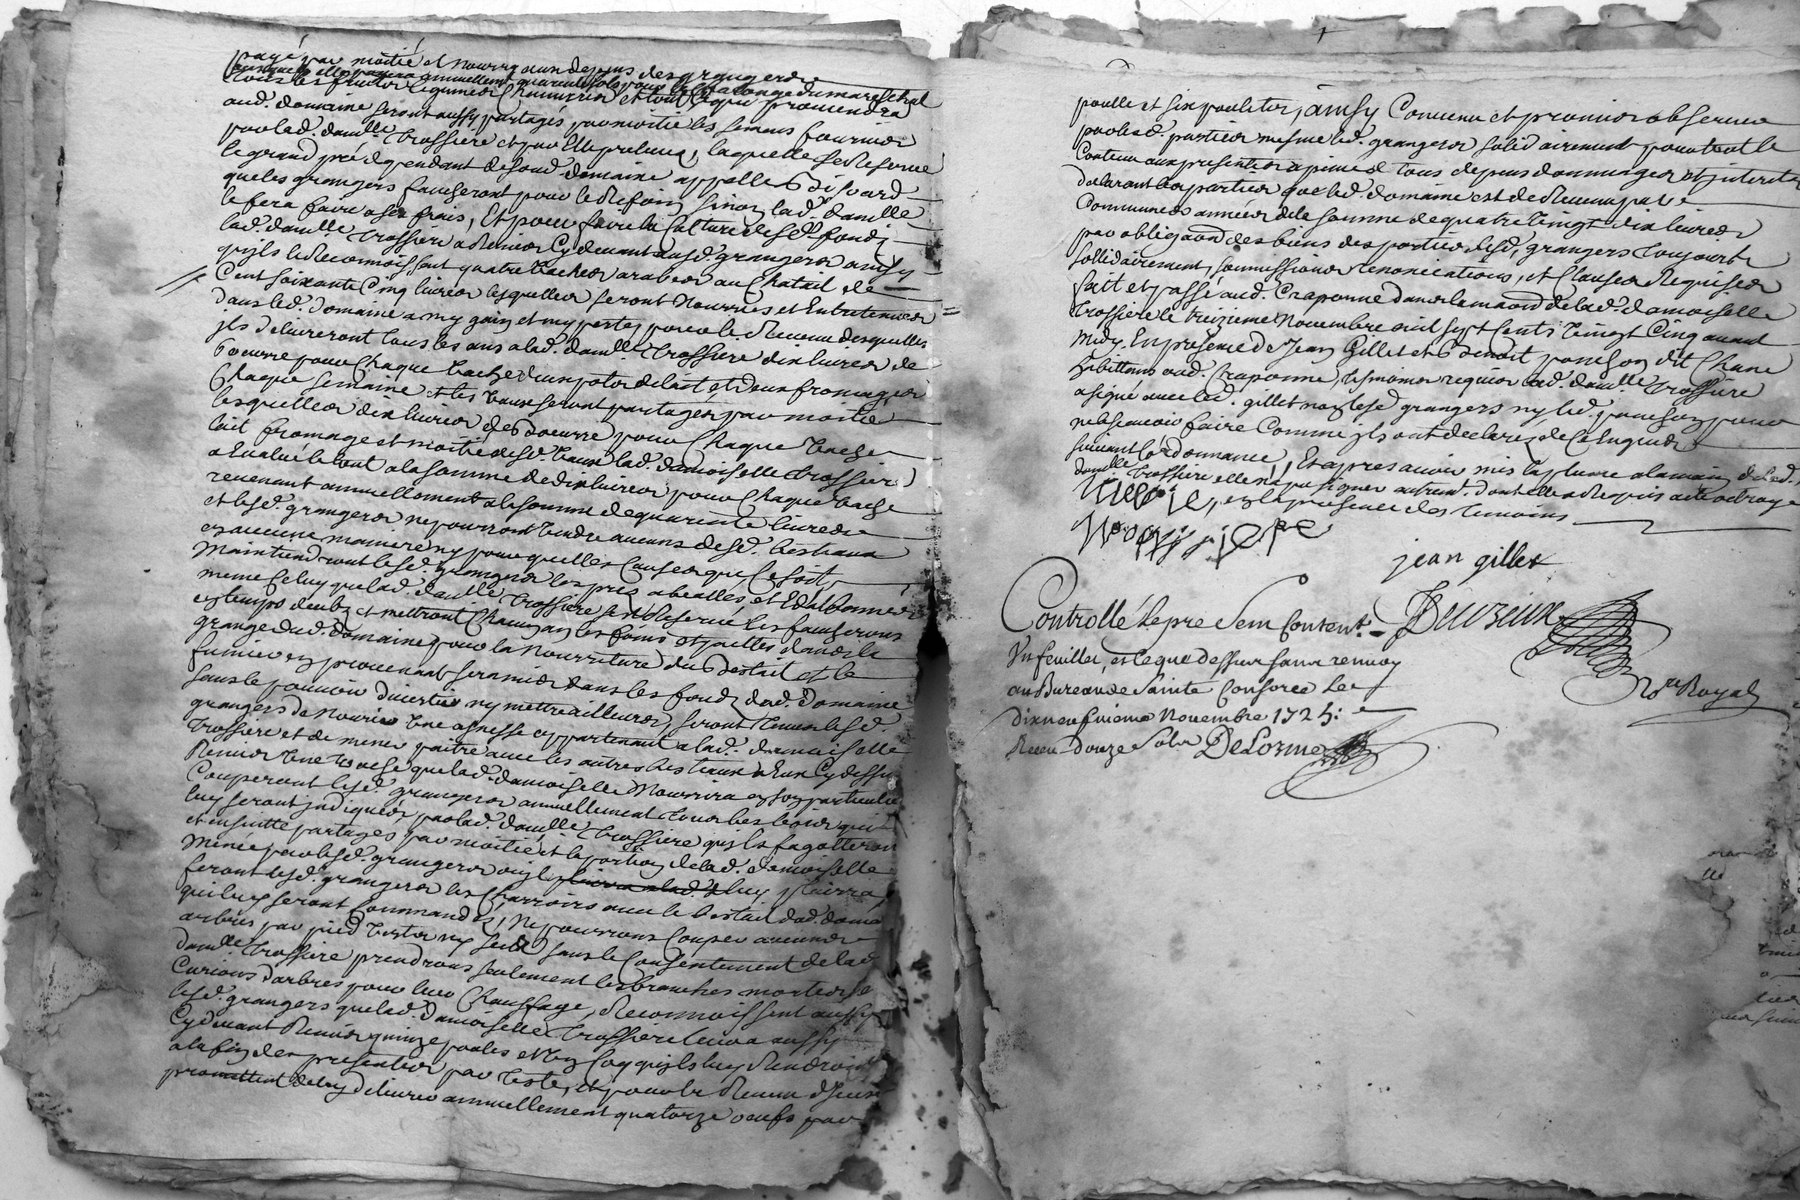 payé par moitié et nourry aux depens des grangers
ausquels elle payera annuellement quarente sols pour la louange du mareschal
tous les fruitor legumes Chanvres et tout ce qui proviendra
aud. domaine seront aussy partagés par moitié les semens fournies
par lad. damlle trossiere et par elle prelevées, laquelle se Reserve
le grand pré dependant desond. domaine appellé
que les grangers faucheront pour le Refoin sinon lad. damlle
le fera faire a ses frais, Et pour faire la Culture desd. fonds
lad. damlle trossiere a Remis Cy devant ausd. grangers ainsy
quils le Reconnoissent quatre vaches arables au Chatail de
Cent soixante Cinq livres lesquelles seront Nourries et Entretenues
dans led. domaine a my gain et my pertes pour le Revenu desquelles
jls delivreront tous les ans a lad. damlle trossiere dix livres de
beurre pour Chaque vache un pot de lait et deux fromages
Chaque semaine et les vaux seront partagés par moitié
lesquelles dix livres de beurre pour Chaque vache
lait fromage et moitié desd. vaux lad. damoiselle trossiere
a Evalué le tout a la somme de dix livres pour Chaque vache
revenant annuellement a la somme de quarente livres
et lesd. grangers ne pourront vendre aucuns desd. bestiaux
en aucune maniere ny pour quelles Causes que Ce soit
Maintiendront lesd. grangers les prés abeallés et
meme Celuy que lad. damlle trossiere se Reserve les faucherons
en temps deub et mettront Chacun an les foins et pailles dans la
grange dud. domaine pour la Nourriture du Bestail et le
fumier en provenant sera mis dans les fonds dud. Domaine
sans le pouvoir divertir ny mettre ailleurs, seront tenus lesd.
grangers de Nourir une asnesse appartenant a lad. damoiselle
trossiere et de mener paitre avec les autres bestiaux a Eux Cy dessus
Remis une vache que lad. damoiselle Nourrira en son particulier
Couperont lesd. grangers annuellement tous les bois qui
luy seront jndiqués par lad. damlle trossiere quils fagotteron
et ensuitte partagés par moitié et la portion de lad. damoiselle
menée par lesd. grangers ou il luy plaira
feront lesd. grangers les Charrois avec le bestail dud. doma
qui leur seront Commandés, Ny pourrons Couper aucuns
arbres par pied verts ny secs sans le Consentement de lad.
damlle trossiere prendrons seulement les branches mortes
Curions darbres pour leur Chauffage, Reconnoissent aussy
lesd. grangers que lad. damoiselle trossiere leur a aussy
Cydevant Remis quinze poules et un Coq quils luy Rendront
a la fin des presentes par reste, et pour le Revenu diceux
promettent de luy delivrer annuellement quatorze oeufs par
poulle et six pouletes, ainsy Convenu et promis observer
par lesd. parties mesme lesd. grangers solidairement pour tout le
Contenu aux presentes a peine de tous depens dommages et interets
declarant les parties que led. domaine est de Revenu par
Communes années de la somme de quatre vingt dix livres
par obligaon des biens des parties lesd. grangers toujours
sollidairement, soumissions renonciations, et Clauses Requises
fait et passé aud. Craponne dans la maison de lad. damoiselle
trossiere le treizieme Novembre mil sept cents vingt Cinq avant
Midy En presence de Jean Gillet et Benoit ponchon dit Chane
habittans aud. Craponne, tesmoins requis lad. damlle trossiere
a signé avec led. gillet non lesd. grangers ny led. ponchon pour
ne le scavoir faire Comme jls ont declarés de Ce Enquis
suivant l'ordonnance, Et apres avoir mis la plume a la main de lad.
damlle trossiere elle n'a pu signer autremt. dont elle a Requis acte octroyé
en la presence des temoins
jean gillet
Controllé le present Content.
Un feuillet, et ce que dessus sans renvoy
au Bureau de Sainte Consorce Le
dixneufvieme Novembre 1725:
Receu douze sols DeLorme
Nore Royal